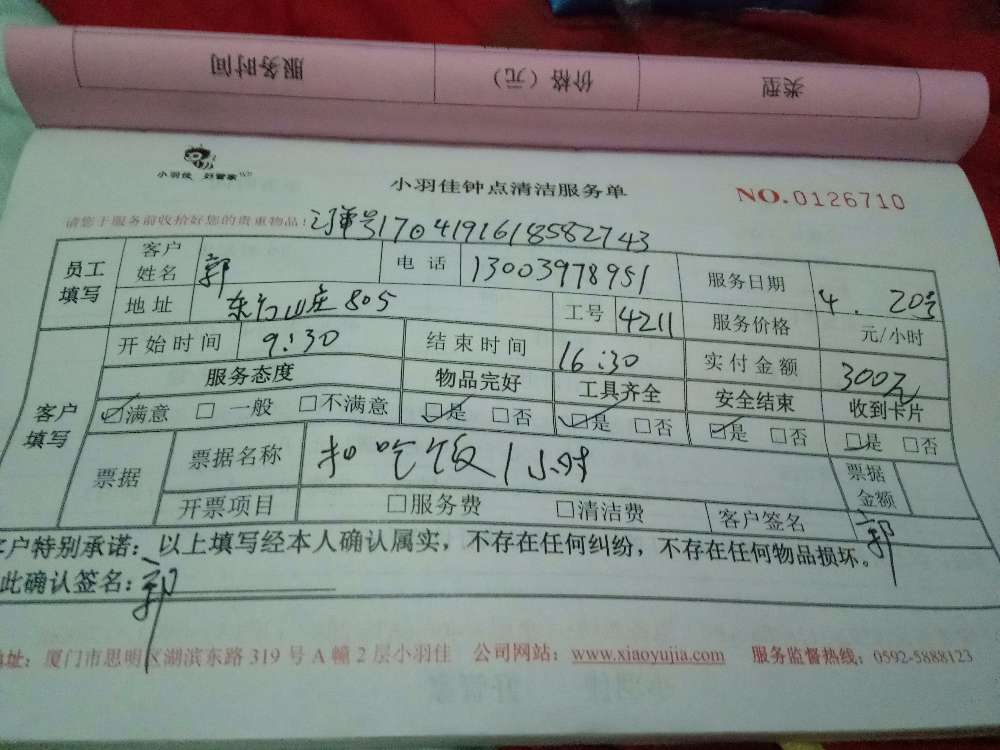 类型 价格（元） 服务时间
小羽佳 好管家
小羽佳钟点清洁服务单
NO.0126710
请您于服务前收拾好您的贵重物品！订单号1704191618582743
员工填写 客户姓名 郭 电话 13003978951 服务日期 4.20号
地址 东方山庄805 工号 4211 服务价格 元/小时
客户填写 开始时间 9:30 结束时间 16:30 实付金额 300元
服务态度 物品完好 工具齐全 安全结束 收到卡片
☑满意 □一般 □不满意 ☑是 □否 ☑是 □否 ☑是 □否 ☑是 □否
票据 票据名称 扣吃饭1小时 票据金额
开票项目 □服务费 □清洁费 客户签名 郭
客户特别承诺：以上填写经本人确认属实，不存在任何纠纷，不存在任何物品损坏。
此确认签名：郭
地址：厦门市思明区湖滨东路319号A幢2层小羽佳 公司网站：www.xiaoyujia.com 服务监督热线：0592-5888123